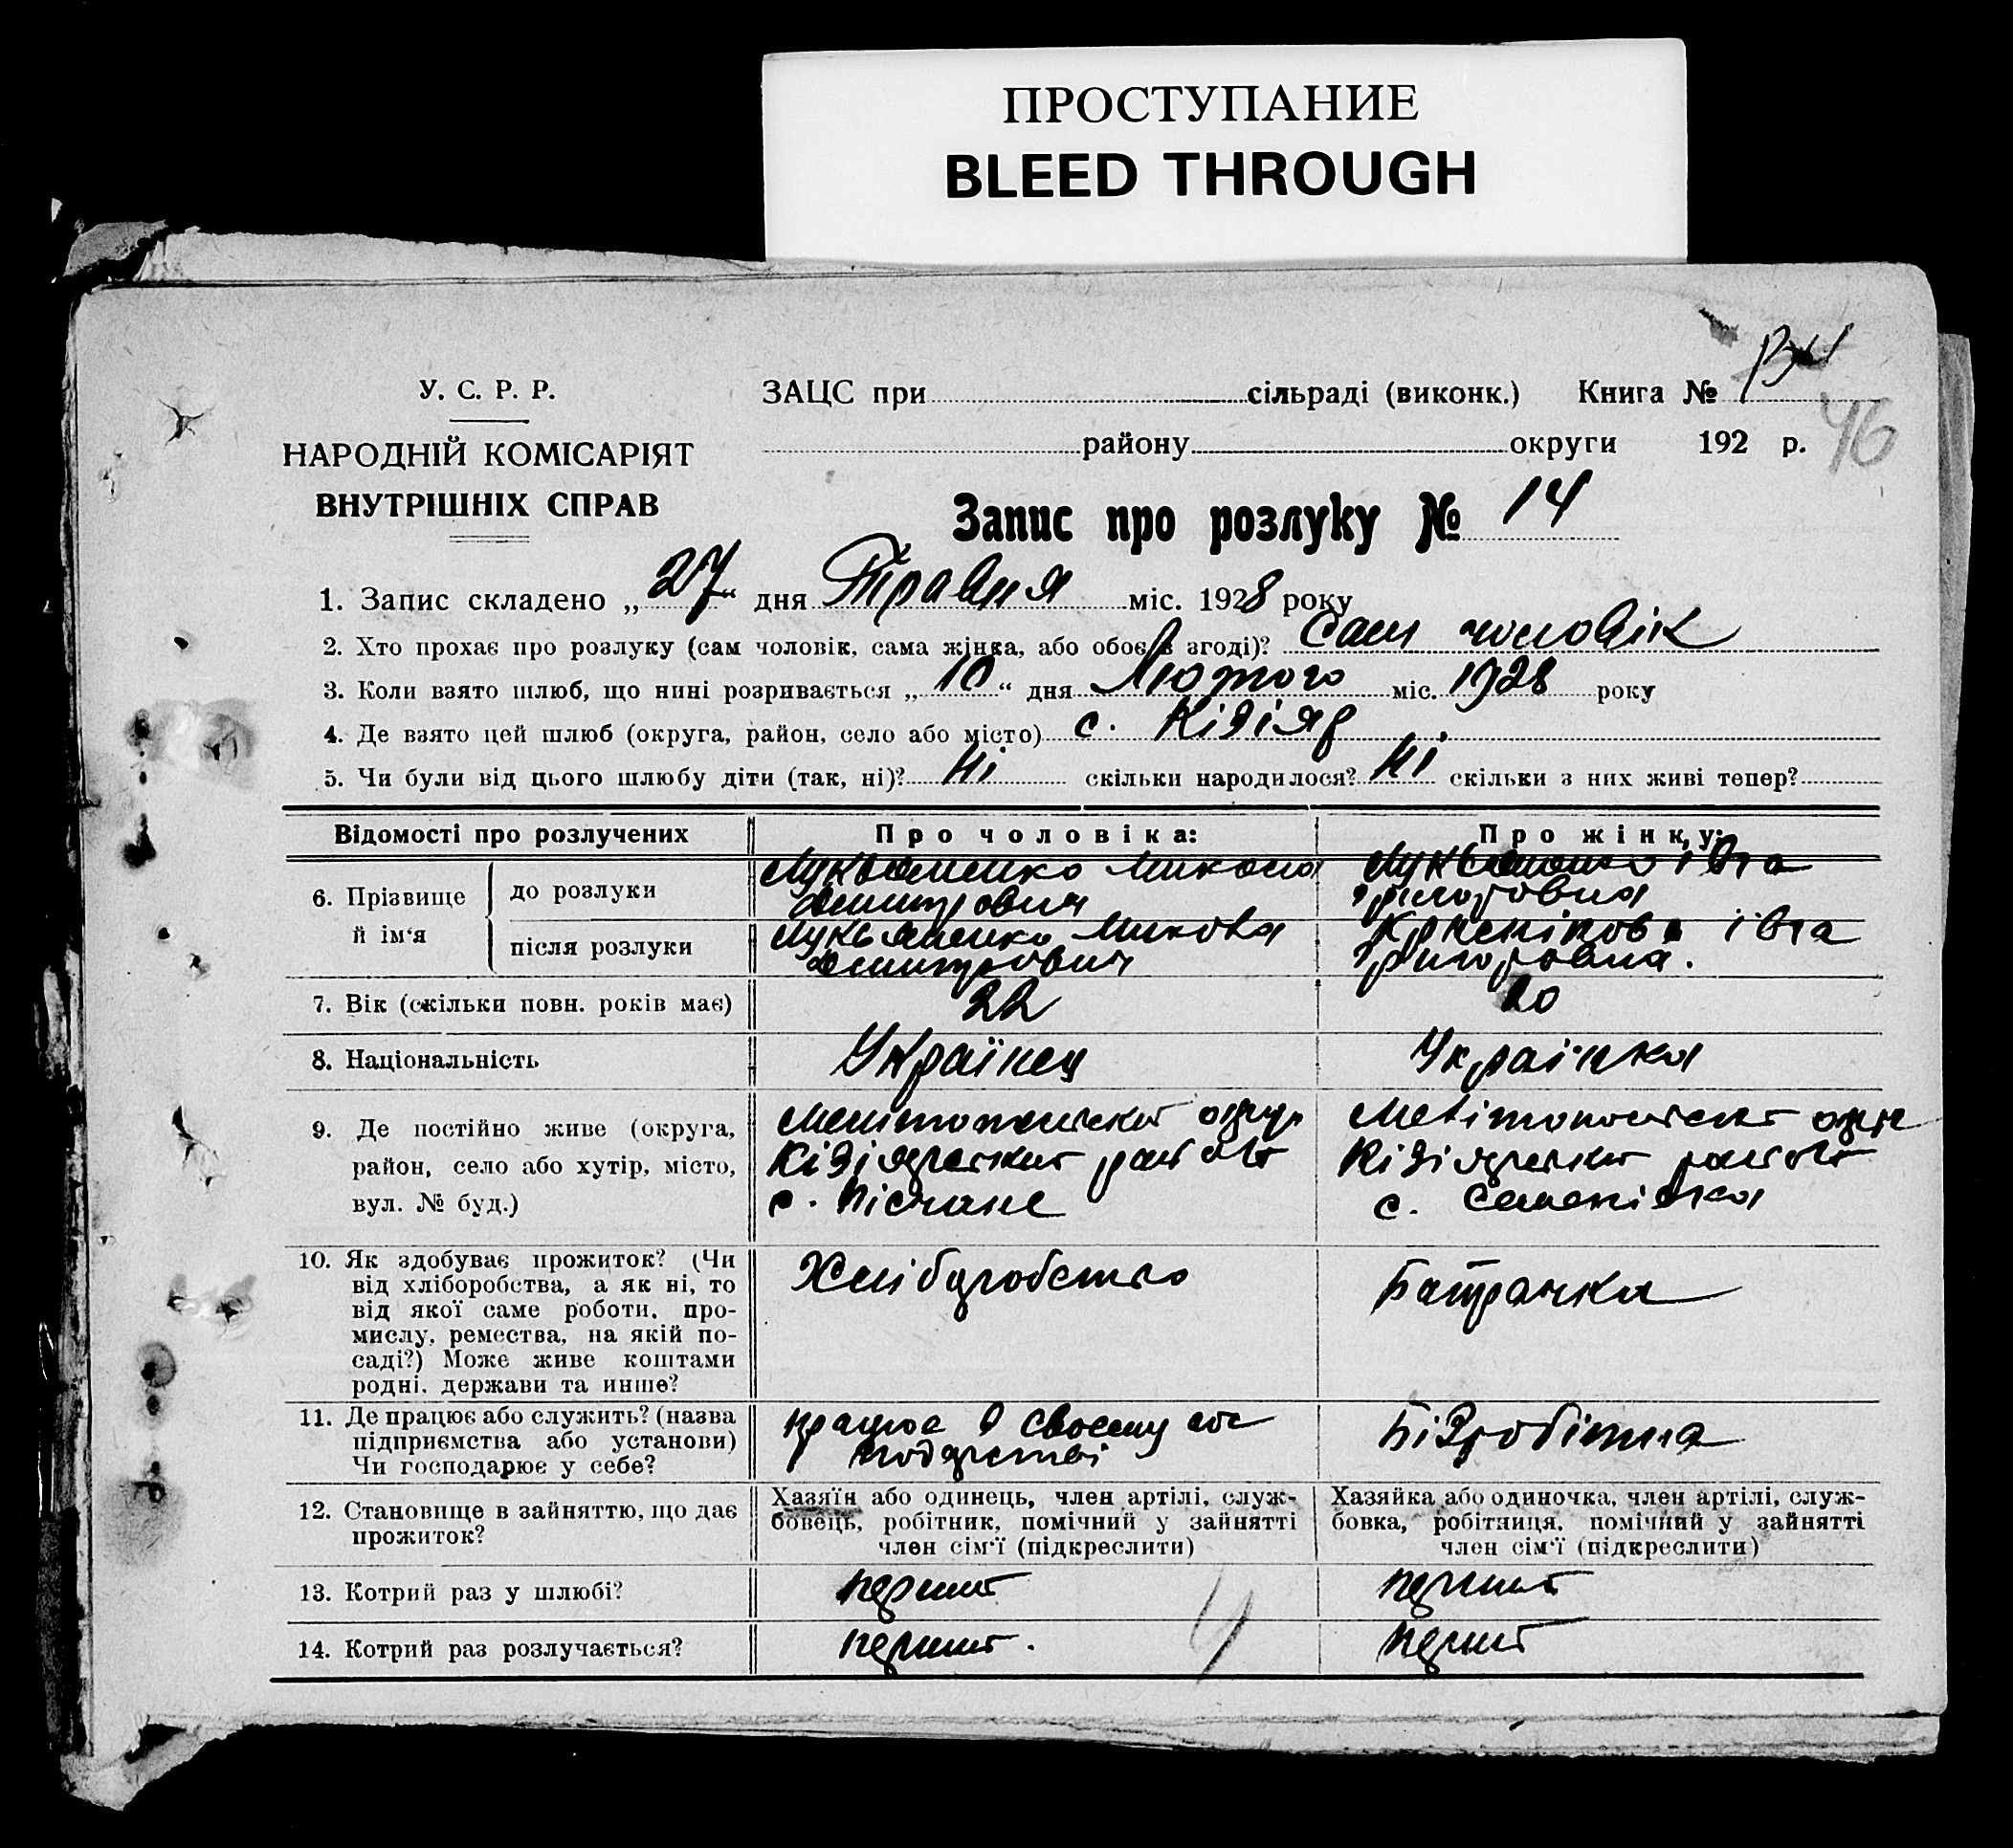 ПРОСТУПАНИЕ
BLEED THROUGH
У. С. Р. Р.
НАРОДНІЙ КОМІСАРІЯТ
ВНУТРІШНІХ СПРАВ
ЗАЦС при сільраді (виконк.) Книга №
району округи 192 р. 46
Запис про розлуку № 14
1. Запис складено „27“ дня Травня міс. 1928 року
2. Хто прохає про розлуку (сам чоловік, сама жінка, або обоє в згоді)? Сам чоловік
3. Коли взято шлюб, що нині розривається „10“ дня Лютого міс. 1928 року
4. Де взято цей шлюб (округа, район, село або місто) с. Кізіяр
5. Чи були від цього шлюбу діти (так, ні)? Ні скільки народилося? Ні скільки з них живі тепер?
Відомості про розлучених
Про чоловіка:
Про жінку:
6. Прізвище й ім‘я
до розлуки
Лукьяненко Микола
Дмитрович
Лукьяненко Івга
Григоровна
після розлуки
Лукьяненко Микола
Дмитрович
Івга
Григоровна.
7. Вік (скільки повн. років має)
22
20
8. Національність
Українец
Українка
9. Де постійно живе (округа,
район, село або хутір, місто,
вул. № буд.)
Мелітопольської округ
Кізіярської район
с. Пісчане
Мелітопольської округ
Кізіярської район
с. Семенівка
10. Як здобуває прожиток? (Чи
від хліборобства, а як ні, то
від якої саме роботи, про-
мислу, ремества, на якій по-
саді?) Може живе коштами
родні, держави та инше?
Хліборобство
Батрачка
11. Де працює або служить? (назва
підприємства або установи)
Чи господарює у себе?
працює в своему гос
подарстві
Безробітна
12. Становище в зайняттю, що дає
прожиток?
Хазяїн або одинець, член артілі, служ-
бовець, робітник, помічний у зайнятті
член сім‘ї (підкреслити)
Хазяйка або одиночка, член артілі, служ-
бовка, робітниця, помічний у зайнятті
член сім‘ї (підкреслити)
13. Котрий раз у шлюбі?
перший
перший
14. Котрий раз розлучається?
перший.
перший